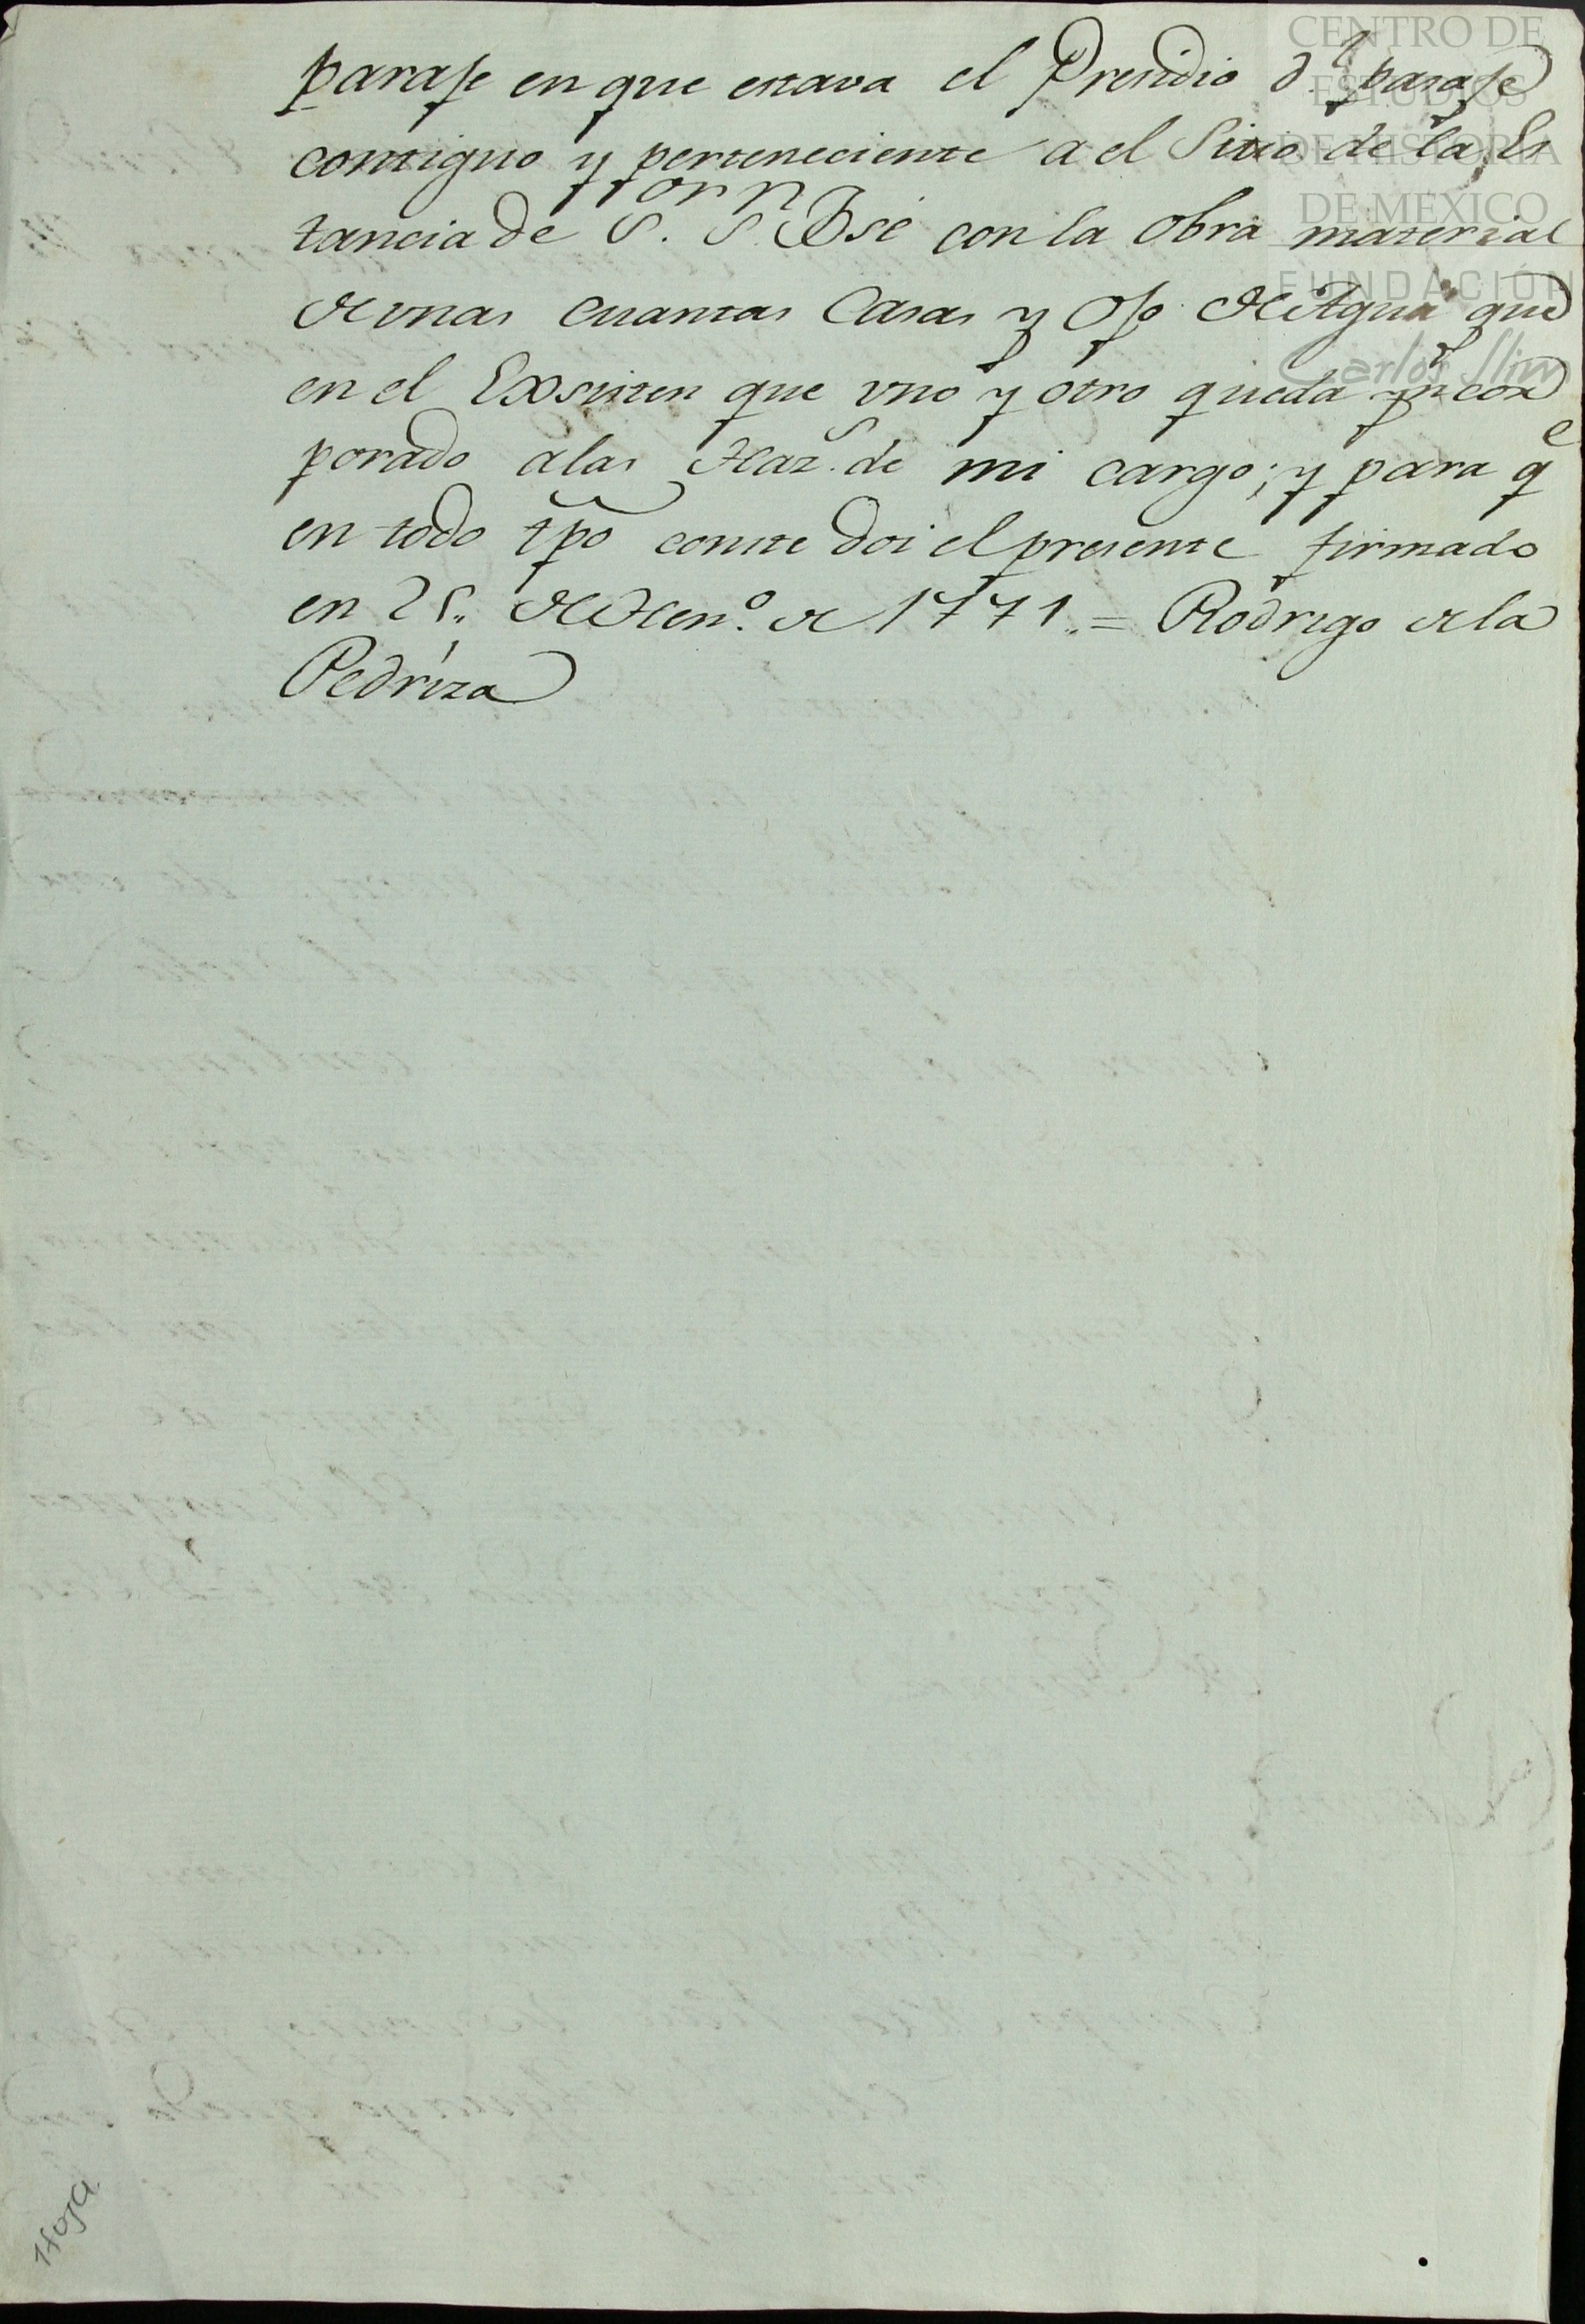 paraje en que estava el Presidio dl paraje
contiguo y perteneciente a el Sitio de la Es
tancia de Sor. Sn. Jsé con la obra material
de unas cuantas Casas y Ojo de Agua que
en el Exsisten que uno y otro queda yncor
porado a las Hazs. de mi cargo; y para qe
en todo tpo conste doi el presente firmado
en 25,, de Hen.o de 1771,,= Rodrigo de la
Pedriza
1 Hoja
CENTRO DE
ESTUDIOS
DE HISTORIA
DE MEXICO
FUNDACIÓN
Carlos Slim